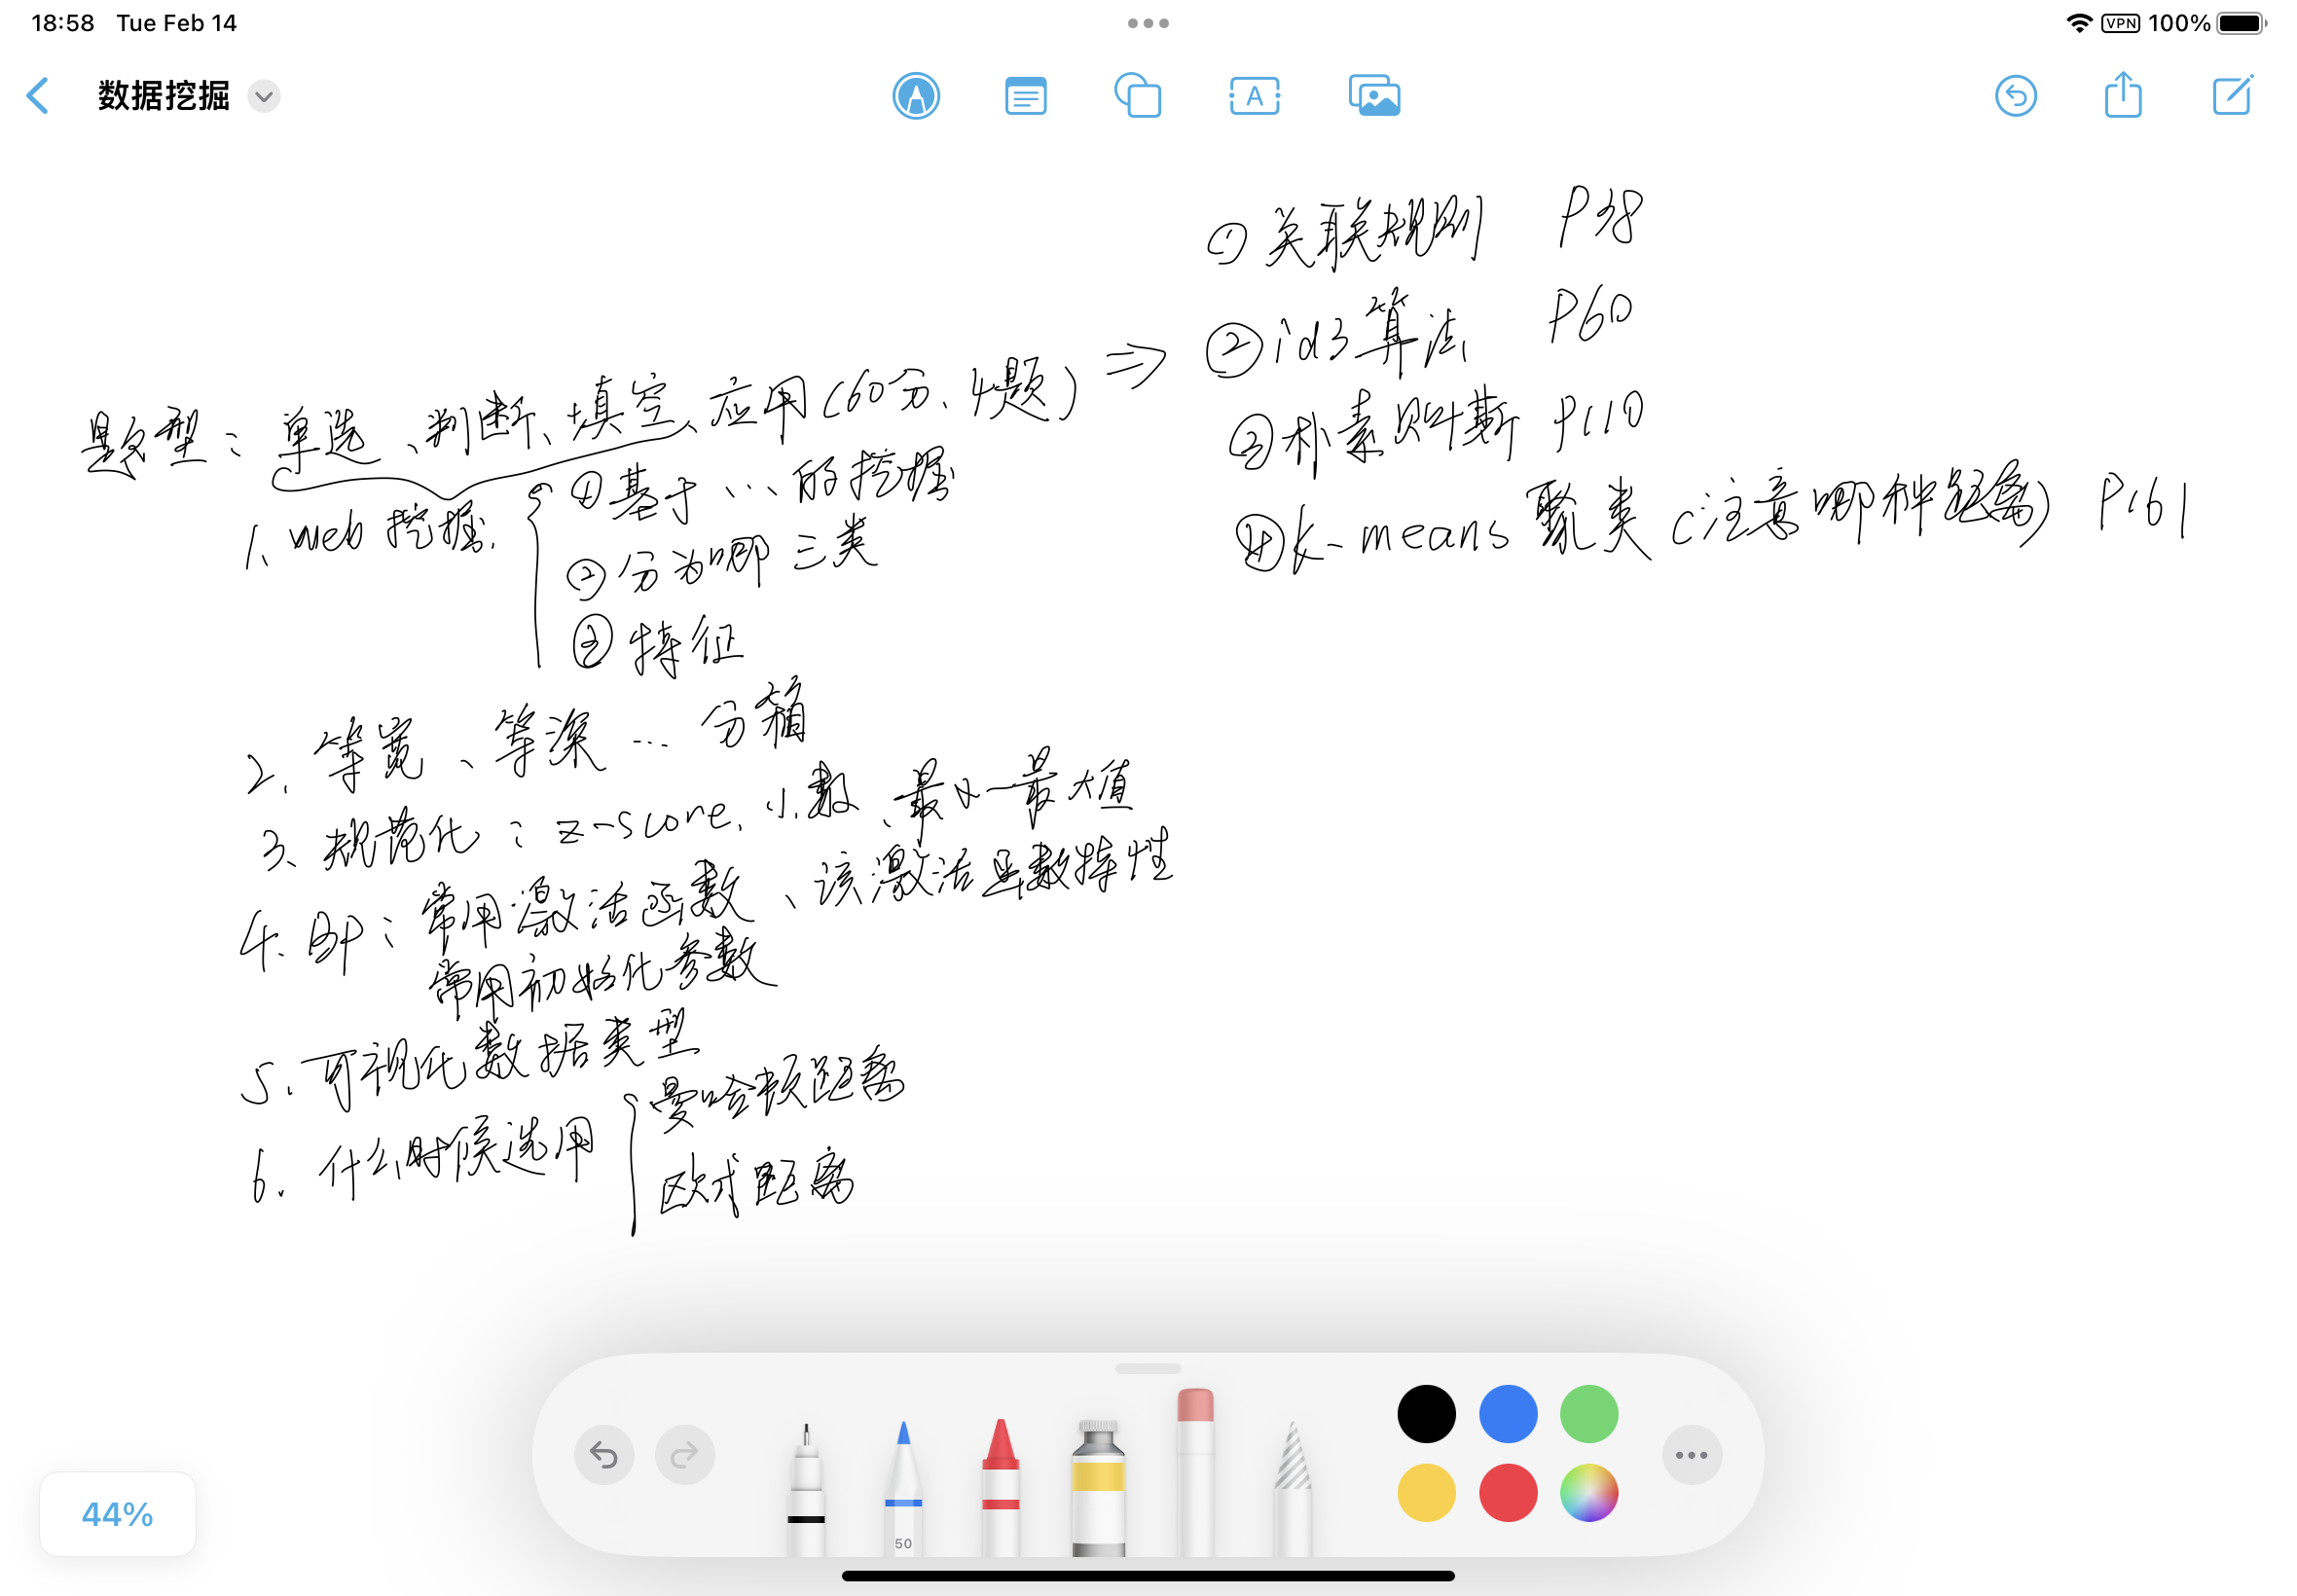 18:58 Tue Feb 14
VPN 100%
数据挖掘
A
题型：单选、判断、填空、应用(60分、4题) ⇒
① 关联规则 P38
② id3算法 P60
③ 朴素贝叶斯 P110
④ k-means 聚类 (注意哪种距离) P161
1. web 挖掘.
① 基于…的挖掘
② 分为哪三类
③ 特征
2. 等宽、等深 … 分箱
3、规范化：z-score、小数、最小-最大值
4. BP：常用激活函数、该激活函数特性
常用初始化参数
5. 可视化数据类型
6. 什么时候选用
曼哈顿距离
欧式距离
50
44%